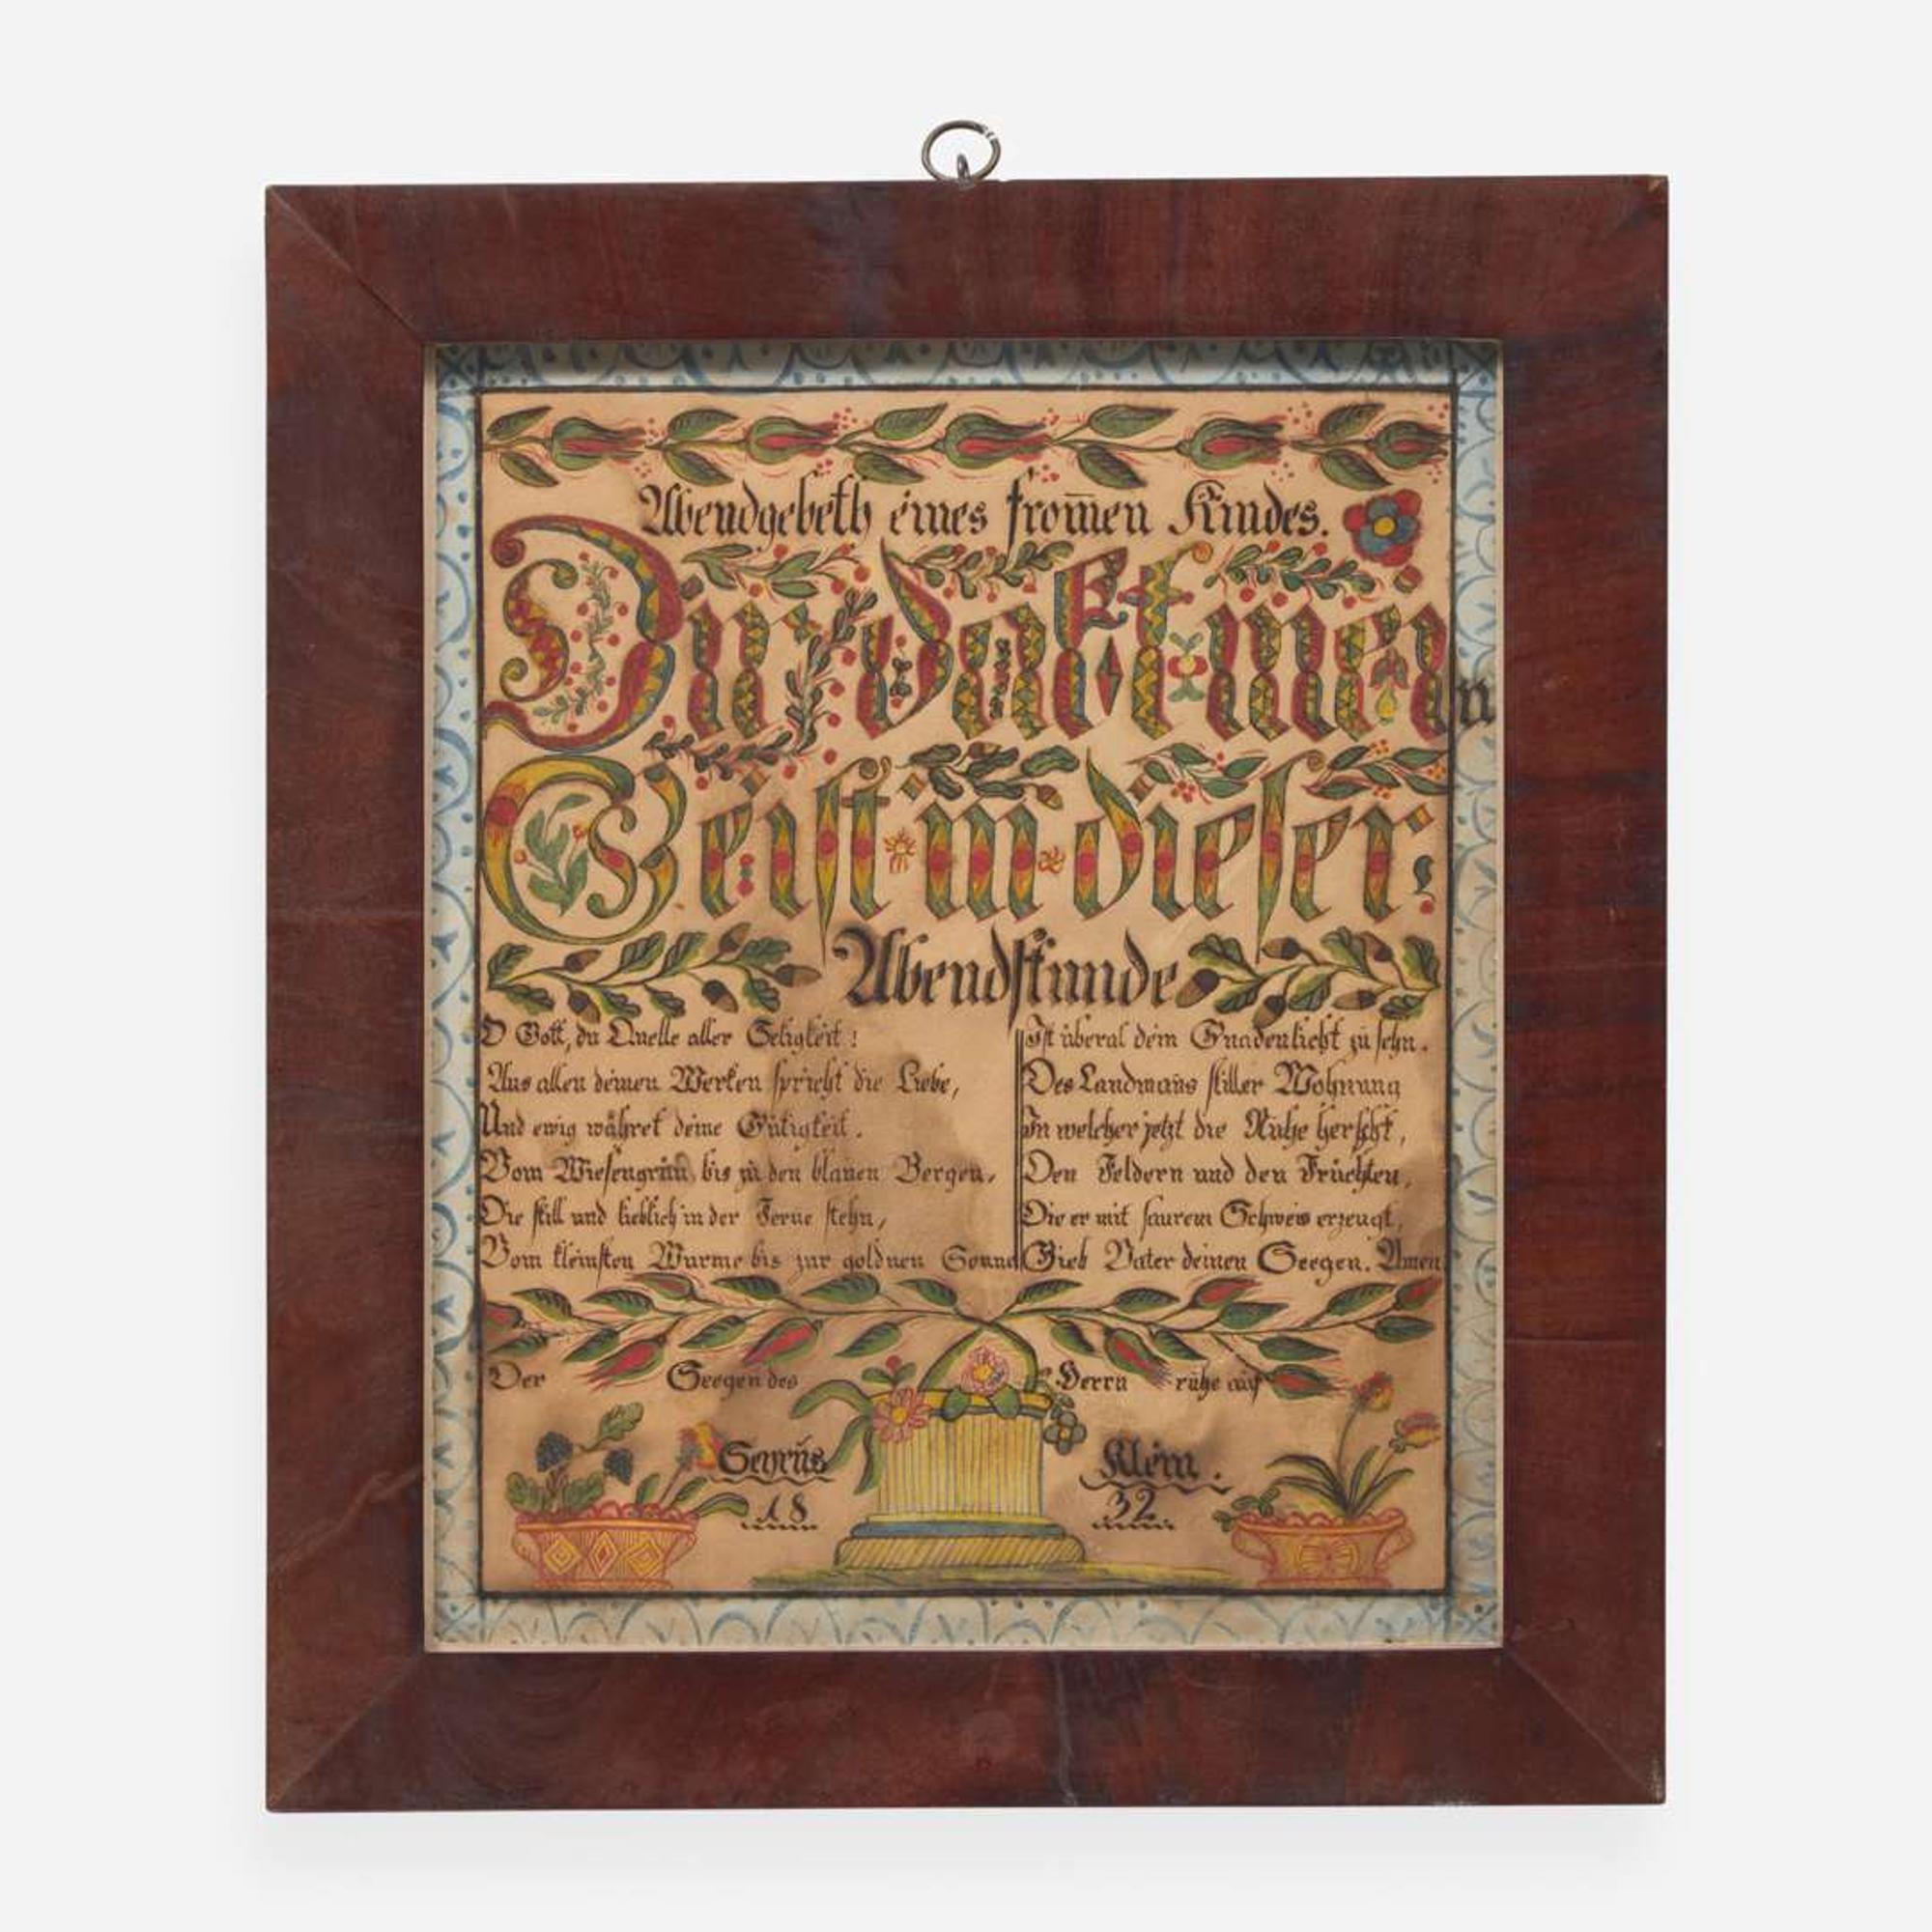 Abendgebeth eines from̄en Kindes.
Dir dankt mein
Geist in dieser
Abendstunde
O Gott, du Quelle aller Seligkeit!
Aus allen deinen Werken spricht die Liebe,
Und ewig währet deine Gütigkeit.
Vom Wiesengrün, bis zu den blauen Bergen,
Die still und lieblich in der Ferne stehn,
Vom kleinsten Wurme bis zur goldnen Sonne
Ist überal dein Gnadenlicht zu sehn.
Des Landman̄s stiller Wohnung
In welcher jetzt die Ruhe herscht,
Den Feldern und den Früchten,
Die er mit saurem Schweis erzeugt,
Gieb Vater deinen Seegen. Amen.
Der Seegen des Herrn ruhe auf
Klein.
18 32